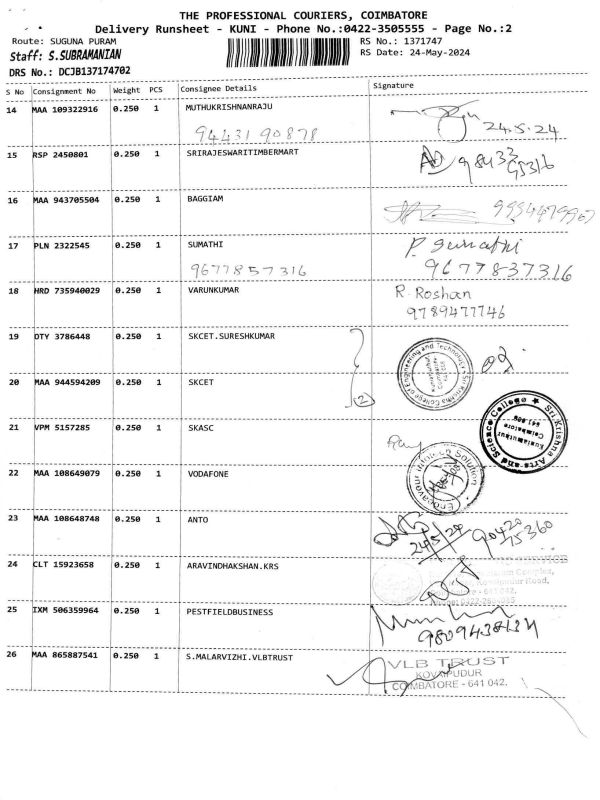 THE PROFESSIONAL COURIERS, COIMBATORE
Delivery Runsheet - KUNI - Phone No.:0422-3505555 - Page No.:2
Route: SUGUNA PURAM
RS No.: 1371747
Staff: S.SUBRAMANIAN
RS Date: 24-May-2024
DRS No.: DCJB137174702
S No Consignment No Weight PCS Consignee Details Signature
14 MAA 109322916 0.250 1 MUTHUKRISHNANRAJU
94431 90878 24.5.24
15 RSP 2450801 0.250 1 SRIRAJESWARITIMBERMART
98433
16 MAA 943705504 0.250 1 BAGGIAM
17 PLN 2322545 0.250 1 SUMATHI P. Sumathi
9677857316 9677837316
18 HRD 735940029 0.250 1 VARUNKUMAR R. Roshan
9789477746
19 DTY 3786448 0.250 1 SKCET.SURESHKUMAR
Sri Krishna College of Engineering and Technology
20 MAA 944594209 0.250 1 SKCET
(2)
Sri Krishna Arts and Science College
Kuniamuthur
Coimbatore
641 008
21 VPM 5157285 0.250 1 SKASC
22 MAA 108649079 0.250 1 VODAFONE
Endeavour Solution
23 MAA 108648748 0.250 1 ANTO
24/5/24 90420 75360
24 CLT 15923658 0.250 1 ARAVINDHAKSHAN.KRS
25 IXM 506359964 0.250 1 PESTFIELDBUSINESS
26 MAA 865887541 0.250 1 S.MALARVIZHI.VLBTRUST
VLB TRUST
KOVAIPUDUR
COIMBATORE - 641 042.